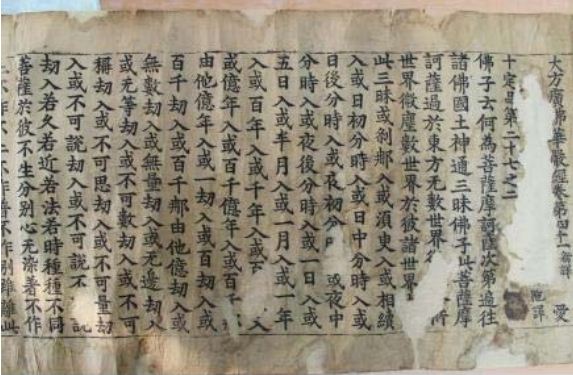 大方廣佛華嚴經卷第四十一 新譯 愛
十定品第二十七之二 陁譯
佛子云何為菩薩摩訶薩次第遍往
諸佛國土神通三昧佛子此菩薩摩
訶薩過於東方無數世界 所
世界微塵數世界於彼諸世界
此三昧或剎那入或須臾入或相續
入或日初分時入或日中分時入或
日後分時入或夜初分 或夜中
分時入或夜後分時入或一日入或
五日入或半月入或一月入或一年
入或百年入或千年入或 入
或億年入或百千億年入或百千
由他億年入或一劫入或百劫入或
百千劫入或百千那由他億劫入或
無數劫入或無量劫入或無邊劫入
或無等劫入或不可數劫入或不可
稱劫入或不可思劫入或不可量劫
入或不可說劫入或不可說不 說
劫入若久若近若法若時種種不同
菩薩於彼不生分別心無染著不作
二不作不二不作普不作別雖離此